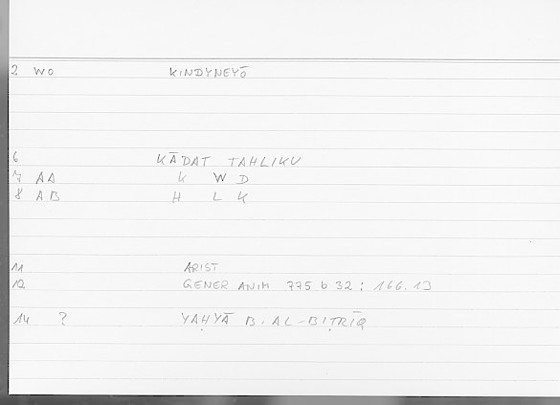 2 WO KINDYNEYŌ
6 KĀDAT TAHLIKU
7 AA K W D
8 AB H L K
11 ARIST
12 GENER ANIM 775 b 32 : 166.13
14 ? YAḤYĀ B. AL-BIṬRĪQ